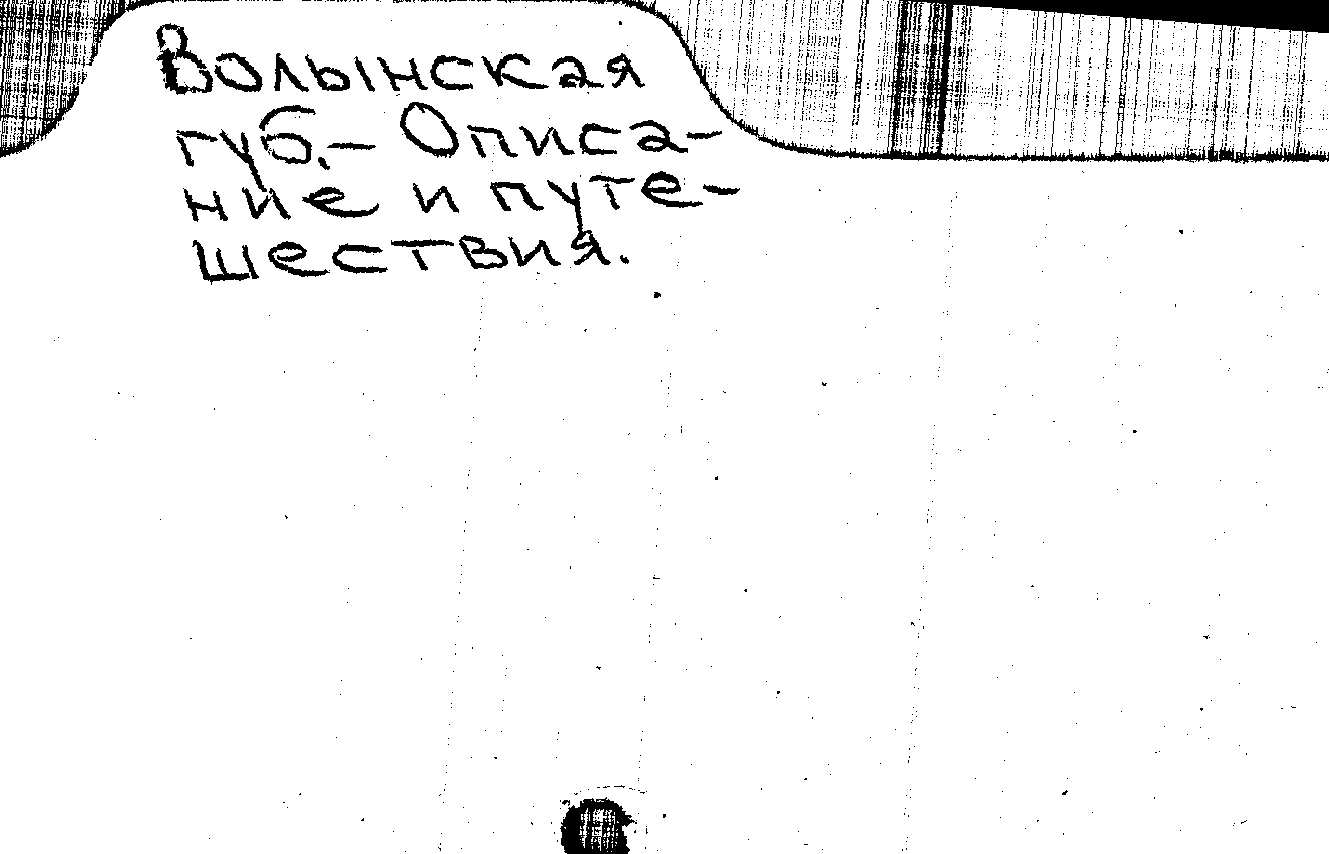 Волынская
губ.– Описа-
ние и путе-
шествия.